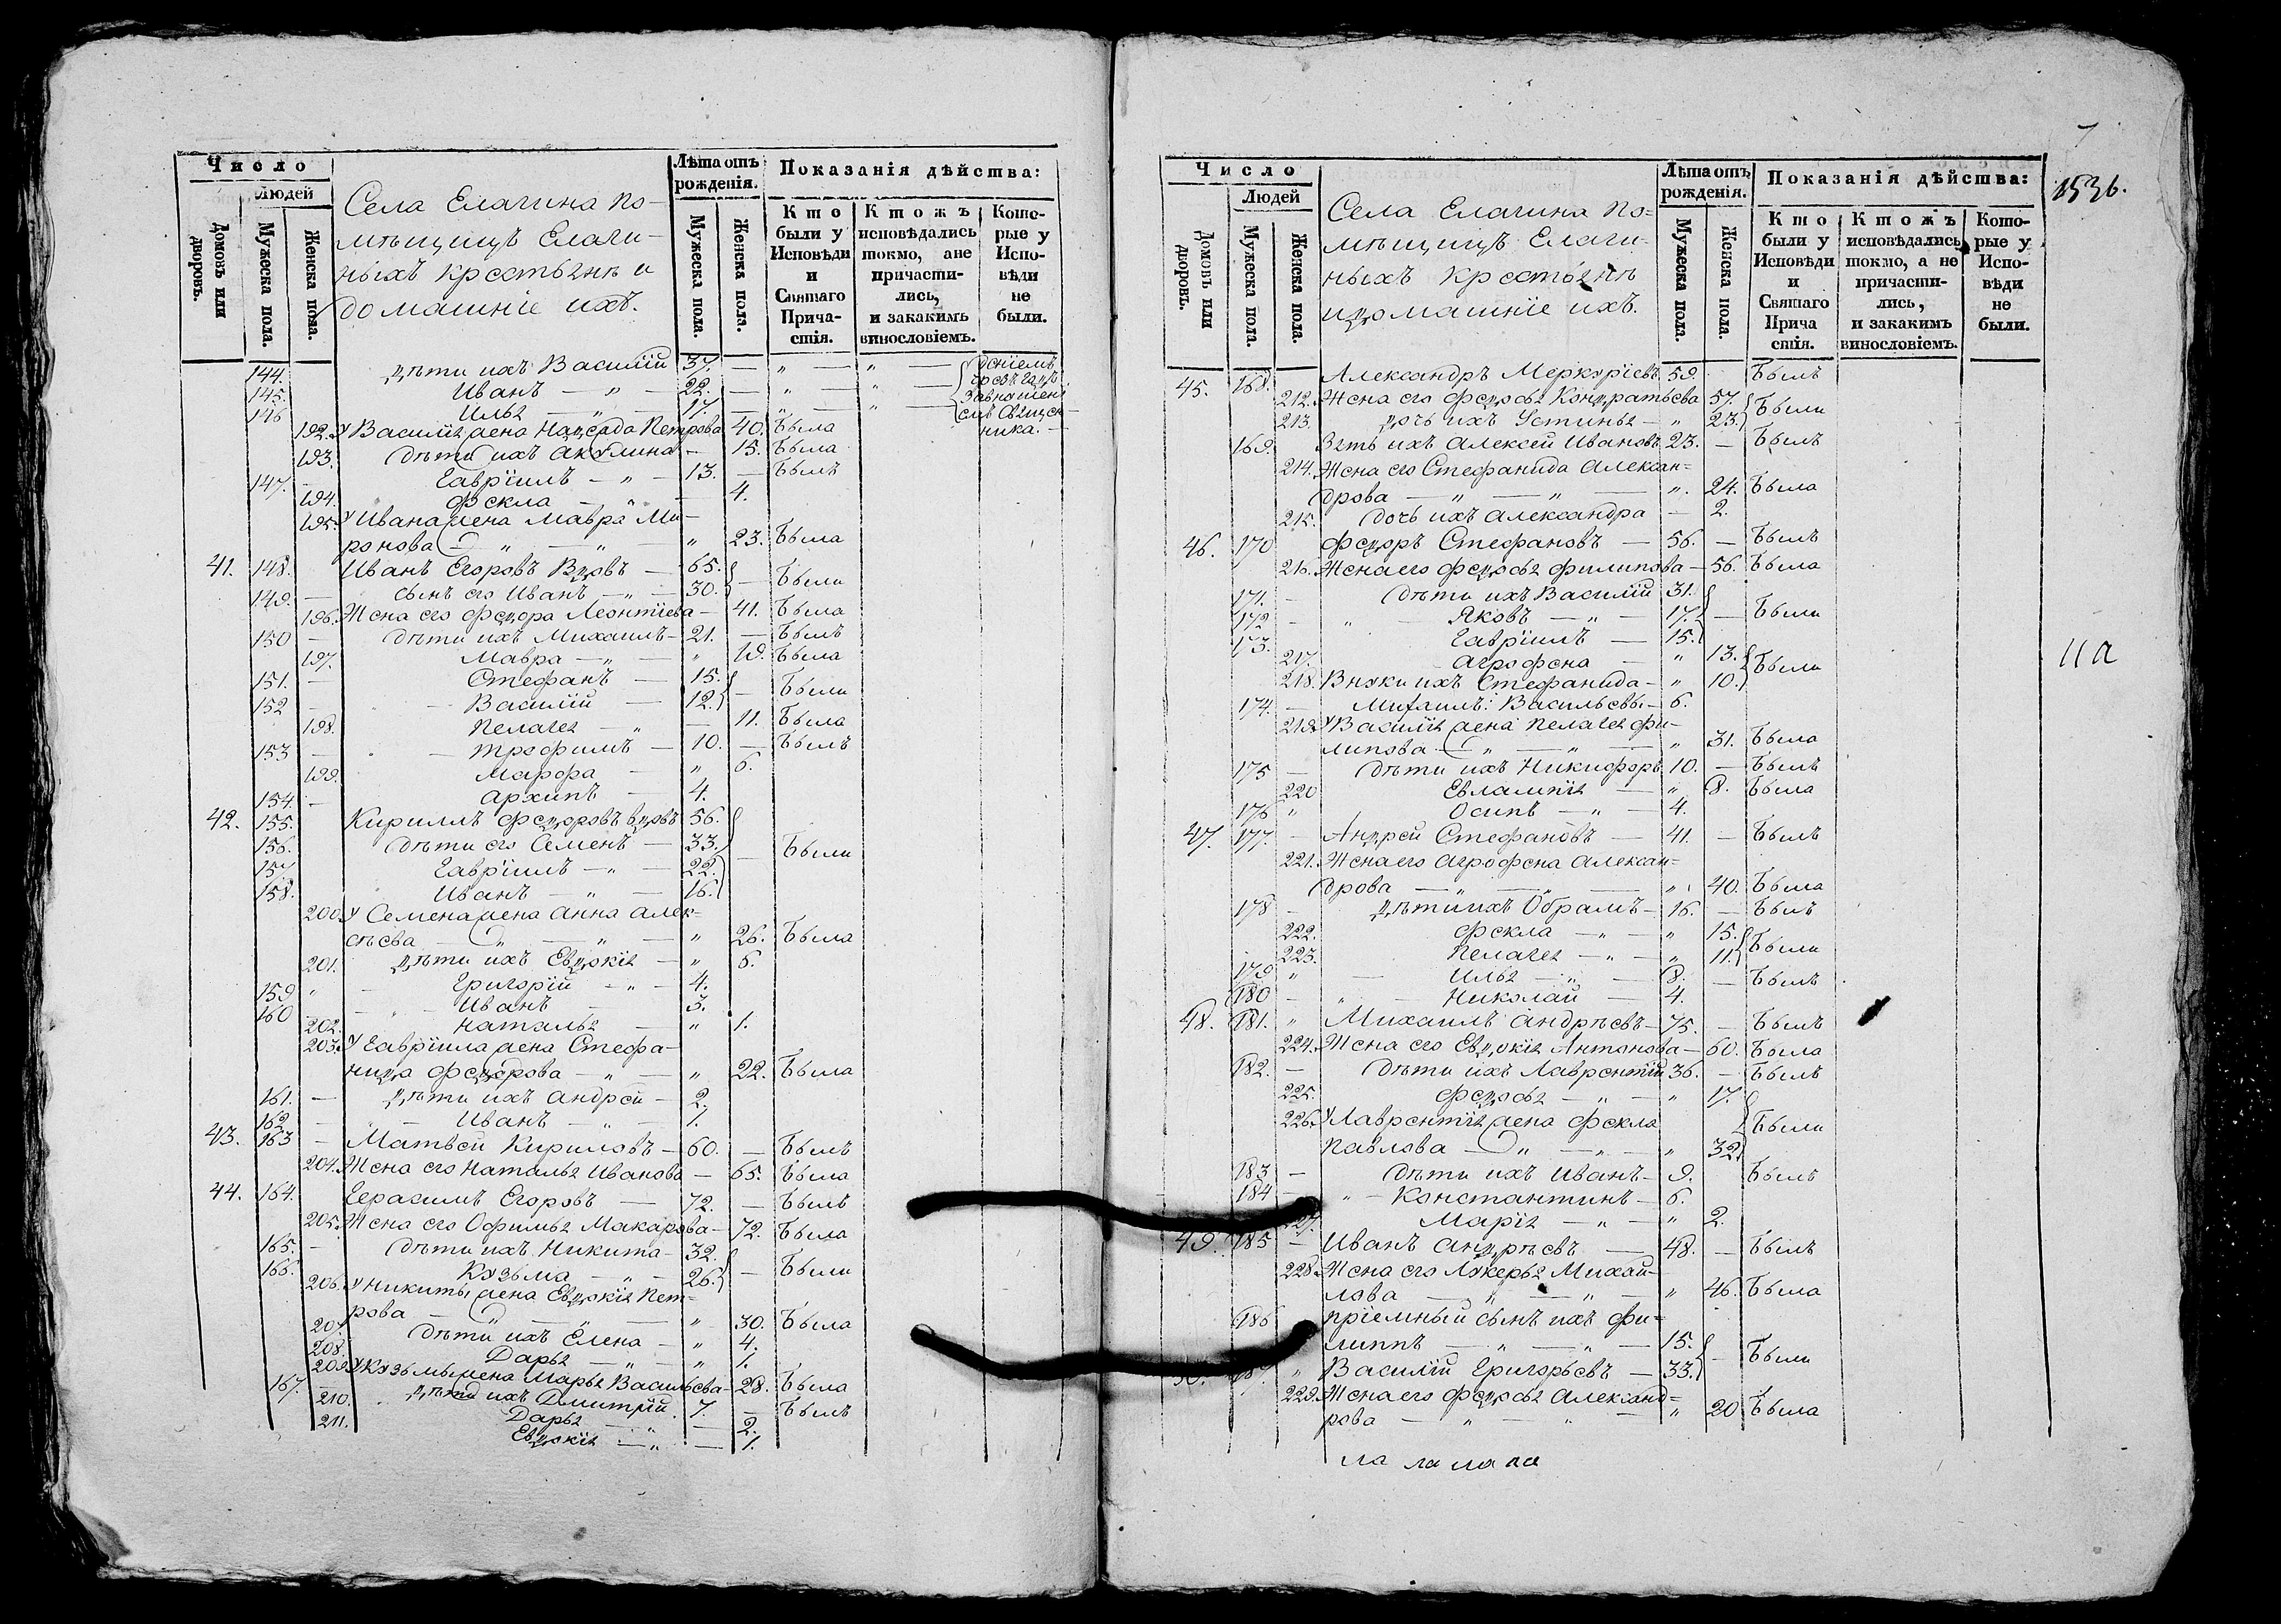 Число
Людей
Домовъ или дворовъ.
Мужеска пола.
Женска пола.
Села Елагина по-
мѣщицъ Елаги-
ныхъ крестьянъ и
домашніе ихъ.
Лѣта отъ рожденія.
Мужеска пола.
Женска пола.
Показанія дѣйства:
Кто были у Исповѣди и Святаго Прича-стія.
Ктожъ исповѣдались токмо, а не причасти-лись, и закакимъ винословіемъ.
Кото-рые у Испо-вѣди не были.
144. дѣти ихъ Василій 37. — „ — „ —
145. Иванъ — „ — 22. — „ — „ —
146 Илья — „ — 17. — „ — „ —
192. У Василія жена Надежда Петрова 40. Была
193. дѣти ихъ Акулина — 15. Была
147. — Гавріилъ — „ — 13. — Былъ
194. Фекла — „ — 4.
195. У Ивана жена Мавра Ми-
ронова — „ — „ — „ 23. Была
41. 148. Иванъ Егоровъ вдовъ — 65.
149. — сынъ его Иванъ — „ — 30. — Были
196. Жена его Федора Леонтіева — 41. Была
150 — дѣти ихъ Михаилъ — 21. — Былъ
197. Мавра — „ — „ 19. Была
151. — Стефанъ — 15.
152 — Василій — 12. — Были
198. Пелагея — „ — 11. Была
153 — Трофимъ — 10. — Былъ
199. Марфа — „ 6.
154. — Архипъ — 4.
42. 155. Кирилъ Федоровъ вдовъ 56.
156. дѣти его Семенъ — 33.
157. Гавріилъ — „ — 22. — Были
158. Иванъ — „ — 16.
200. У Семена жена Анна Алек=
сѣева — „ — „ — „ 26. Была
201. дѣти ихъ Евдокія — „ 6.
159 „ — Григорій — „ — 4.
160 — „ — Иванъ — 3.
202. Наталья — „ 1.
203. У Гавріила жена Стефа-
нида Федорова — „ — „ 22. Была
161. — дѣти ихъ Андрей — 2.
162 — Иванъ — „ — 1.
43. 163 — Матвей Кириловъ — 60. — Былъ
204. Жена его Наталья Иванова — 65. Была
44. 164. Герасимъ Егоровъ — 72. — Былъ
205. Жена его Офимья Макарова — 72. Была
165. — дѣти ихъ Никита — 32.
166. Кузьма — „ — 26. — Были
206. У Никиты жена Евдокія Пет=
рова — „ — „ 30. Была
207. дѣти ихъ Елена — „ 4.
208. Дарья — „ — „ 1.
209. У Кузьмы жена Марья Васильева — 28. Была
167. — дѣти ихъ Дмитрій 7. — Былъ
210. Дарья — „ — 2.
211. Евдокія — „ — 1.
Число
Людей
Домовъ или дворовъ.
Мужеска пола.
Женска пола.
Села Елагина по=
мѣщицъ Елаги-
ныхъ крестьянъ
и домашніе ихъ.
Лѣта отъ рожденія.
Мужеска пола.
Женска пола.
Показанія дѣйства:
Кто были у Исповѣди и Святаго Прича стія.
Ктожъ исповѣдались токмо, а не причасти-лись, и закакимъ винословіемъ.
Кото-рые у Испо-вѣди не были.
1536.
45. 168. Александръ Меркуріевъ 59. Былъ
212. Жена его Федосья Кондратьева 57.
213. дочь ихъ Устинья — „ 23. Были
169. Зять ихъ Алексей Ивановъ 23. — Былъ
214. Жена его Стефанида Алексан=
дрова — „ — „ — „. 24. Была
215. дочь ихъ Александра — 2.
46. 170 Федоръ Стефановъ — 56. — Былъ
216. Жена его Федосья Филипова — 56. Была
171. — дѣти ихъ Василій 31.
172 — „ Яковъ — „ — 17. — Были
173. Гавріилъ — 15.
217. Агрофена — „ 13.
218. Внуки ихъ Стефанида — „ 10. Были
174. — Михаилъ: Васильевы — 6.
219. У Василія жена Пелагея Фи-
липова — „ — „ — „ 31. Была
175 — дѣти ихъ Никифоръ 10. — Былъ
220 Евлампія — „ 8. Была
176 „ Осипъ — „ — 4.
47. 177. — Андрей Стефановъ — 41. — Былъ
221. Жена его Агрофена Алексан=
дрова — „ — „ — „. 40. Была
178 — дѣти ихъ Обрамъ — 16. — Былъ
222. Фекла — „ — „ 15.
223. Пелагея — „ — „ 11. Были
179 „ — Илья — „ — 8. — Былъ
180 — „ — Николай — 4.
48. 181. „ Михаилъ Андрѣевъ — 75. — Былъ
224. Жена его Евдокія Антонова — 60. Была
182. — дѣти ихъ Лаврентій 36. — Былъ
225. Федосья — „ — „ 17.
226. У Лаврентія жена Фекла Были
Павлова — „ — „ — „ 32.
183 — дѣти ихъ Иванъ — 9. Былъ
184 — „ — Константинъ — 6.
227. Марія — „ — „ 2.
49. 185 — Иванъ Андрѣевъ — 48. — Былъ
228. Жена его Лукерья Михай-
лова — „ — „ — „ 46. Была
186 пріемный сынъ ихъ Фи=
липпъ — „ — „ — 15.
50. 187. „ Василій Григорьевъ — 33. — Были
229. Жена его Федосья Александ=
рова — „ — „ — „ 20 Была
11а
ла ла ла ла